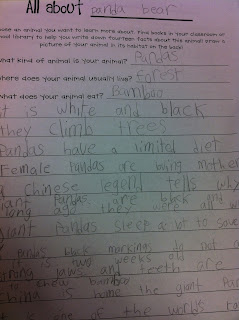 All about panda bear
ose an animal you want to learn more about. Find books in your classroom or
ool library to help you write down fourteen facts about this animal! Draw a
picture of your animal in its habitat on the back!
hat kind of animal is your animal? Pandas
here does your animal usually live? forest
hat does your animal eat? Bamboo
t is white and black
they climb trees
Pandas have a limited diet
Female Pandas are loving mother
g Chinese legend tells why
giant Pandas are black and
long ago they were all w
giant Pandas sleep a lot to save
Pandas black markings do not a
is two weeks old
strong jaws and teeth are
to chew bamboo
China is home the giant Pan
is one of the world's